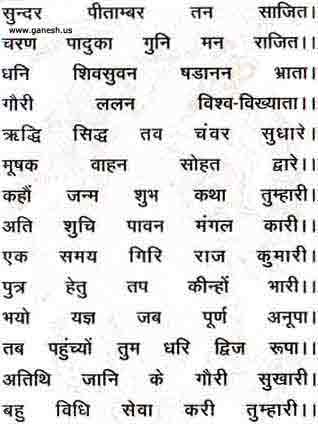 सुन्दर पीताम्बर तन साजित।
www.ganesh.us
चरण पादुका गुनि मन राजित।।
धनि शिवसुवन षडानन भ्राता।
गौरी ललन विश्व-विख्याता।।
ऋद्धि सिद्ध तव चंवर सुधारे।
मूषक वाहन सोहत द्वारे।
कहौं जन्म शुभ कथा तुम्हारी।
अति शुचि पावन मंगल कारी।।
एक समय गिरि राज कुमारी।
पुत्र हेतु तप कीन्हों भारी।।
भयो यज्ञ जब पूर्ण अनूपा।
तब पहुंच्यों तुम धरि द्विज रूपा।।
अतिथि जानि के गौरी सुखारी।
बहु विधि सेवा करी तुम्हारी।।